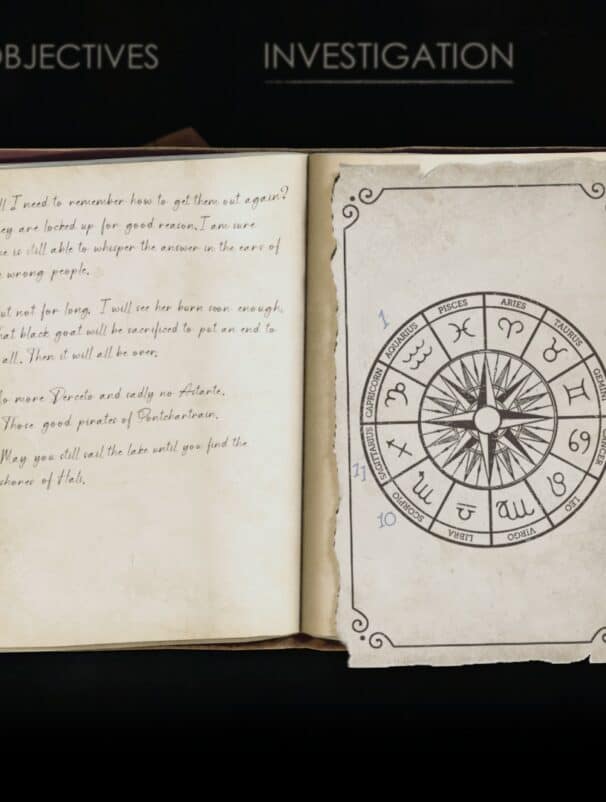 OBJECTIVES
INVESTIGATION
I need to remember how to get them out again?
are locked up for good reason. I am sure
is still able to whisper the answer in the ears of
wrong people.
not for long. I will see her burn soon enough.
that black goat will be sacrificed to put an end to
all. Then it will all be over.
more Derceto and sadly no Astarte.
Those good pirates of Pontchartrain.
May you still sail the lake until you find the
shores of Hali.
1
PISCES
ARIES
AQUARIUS
TAURUS
CAPRICORN
GEMINI
SAGITTARIUS
CANCER
11
SCORPIO
LEO
10
LIBRA
VIRGO